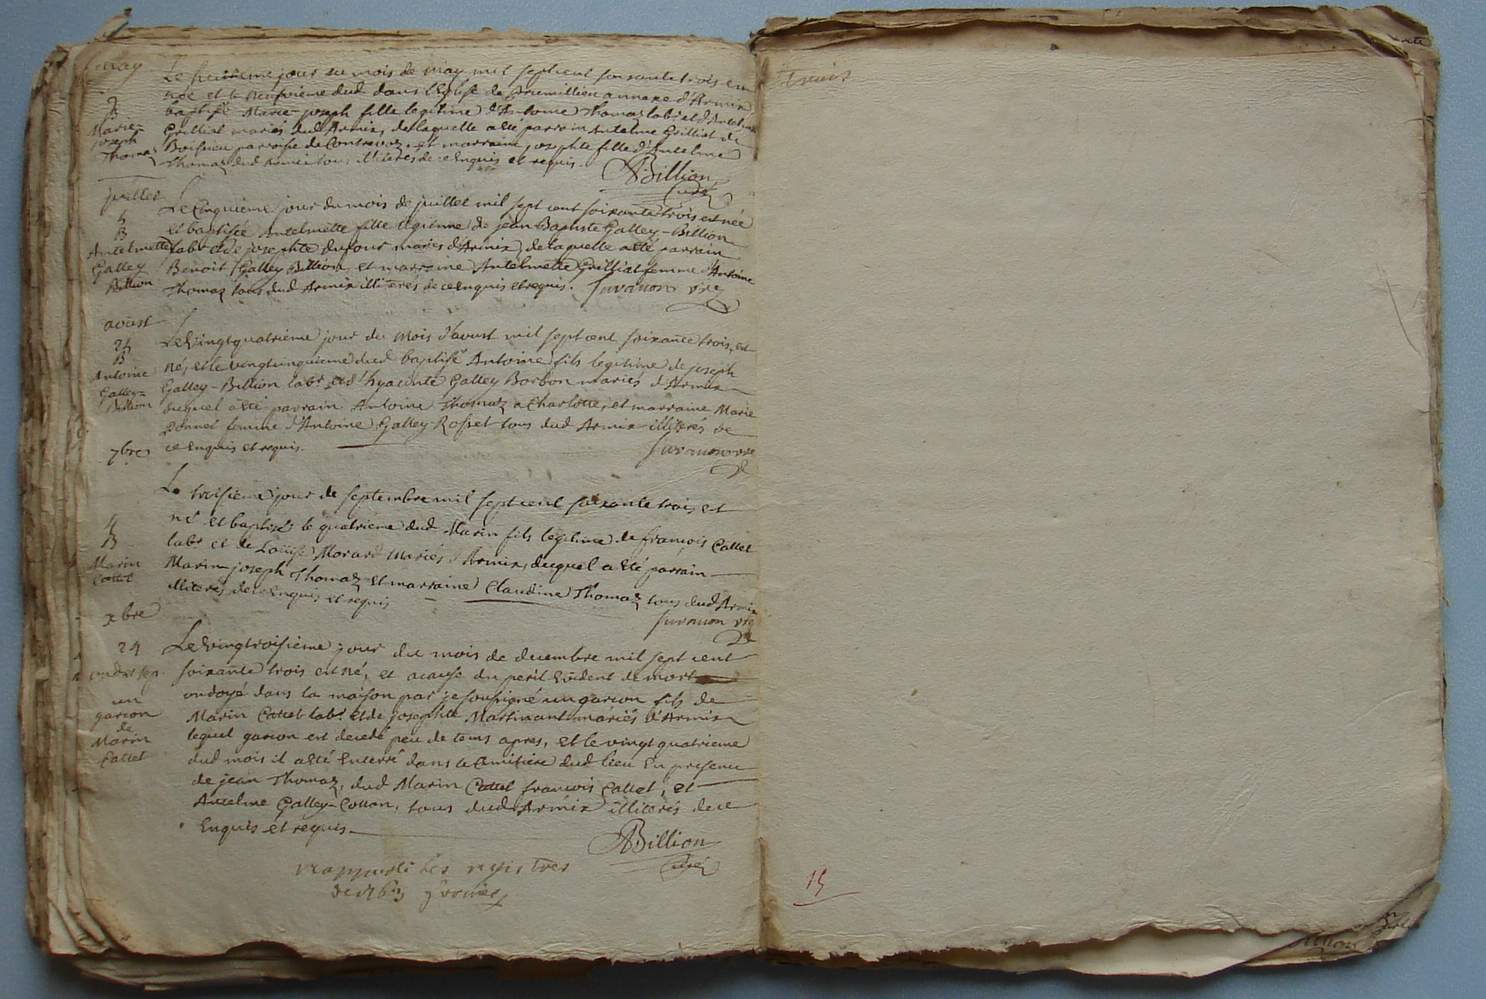 may
Le huitieme jour du mois de may mil sept cent soixante trois est
née et le neufvieme dud dans l'Eglise de premillieu annexe d'Armix
baptisée Marie-joseph fille legitime d'Antoine Thomaz labr et d'Antelme
9
B
Marie-
joseph
Thomaz
Grilliat mariés dud Armix, de laquelle a été parrain Antelme Grilliat de
Boissieu parroisse de Contrevoz, et marraine josephte fille d'Antelme
Thomaz dud Armix tous illiterés de ce enquis et requis.
ABillion
Curé
juillet
5
B
Antelmette
Galley
Billion
Le Cinquieme jour du mois de juillet mil sept cent soixante trois est née
et baptisée Antelmette fille legitime de jean Baptiste Galley-Billion
labr et de josephte dufour mariés d'Armix, de laquelle a été parrain
Benoit Galley Billion, et marraine Antelmette Grilliat femme d'Antoine
Thomaz tous dud Armix illiterés de ce enquis et requis. Juvanon vre
aoust
25
B
Antoine
Galley-
Billion
Le vingt quatrieme jour du mois d'aoust mil sept cent soixante trois, est
né, et le vingt cinquieme dud baptisé Antoine fils legitime de joseph
Galley-Billion labr et d'hyacinte Galley Borbon mariés d'Armix
duquel a été parrain Antoine Thomaz a Charlotte, et marraine Marie
Bonnet femme d'Antoine Galley-Rosset tous dud Armix illiterés de
ce enquis et requis.
Juvanon vre
7bre
4
B
Marin
Cattet
Le troisieme jour de septembre mil sept cent soixante trois est
né et baptisé le quatrieme dud Marin fils legitime de françois Cattet
labr et de Louise Morard mariés d'Armix, duquel a été parrain
Marin-joseph Thomaz et marraine Claudine Thomaz tous dud Armix
illiterés de ce enquis et requis
Juvanon vre
xbre
24
ondoyé sep.
un
garcon
de
Marin
Cattet
Le vingtroisieme jour du mois de decembre mil sept cent
soixante trois est né, et a cause du peril Evident de mort
ondoyé dans la maison par je soussigné un garcon fils de
Marin Cattet labr et de josephte Martinant mariés d'Armix
lequel garcon est decedé peu de tems apres, et le vingt quatrieme
dud mois il a été Enterré dans le Cimitiere dud lieu En presence
de jean Thomaz, dud Marin Cattet françois Cattet, et
Antelme Galley-Cottan, tous dud Armix illiterés de ce
Enquis et requis.
ABillion
Curé
15